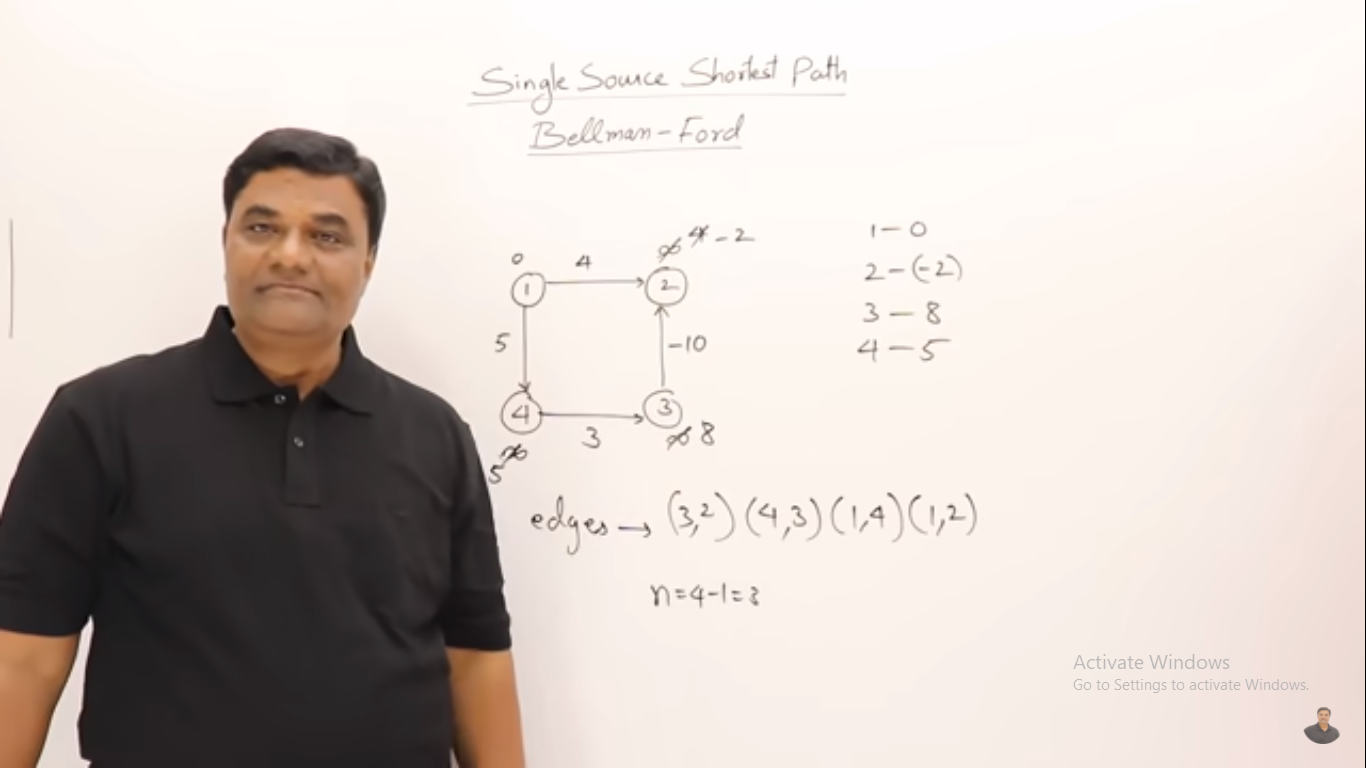 Single Source Shortest Path
Bellman-Ford
0
4
∞ 4 -2
1
2
5
-10
4
3
3
∞ 8
∞
5
1 - 0
2 - (-2)
3 - 8
4 - 5
edges → (3,2) (4,3) (1,4) (1,2)
n=4-1=3
Activate Windows
Go to Settings to activate Windows.